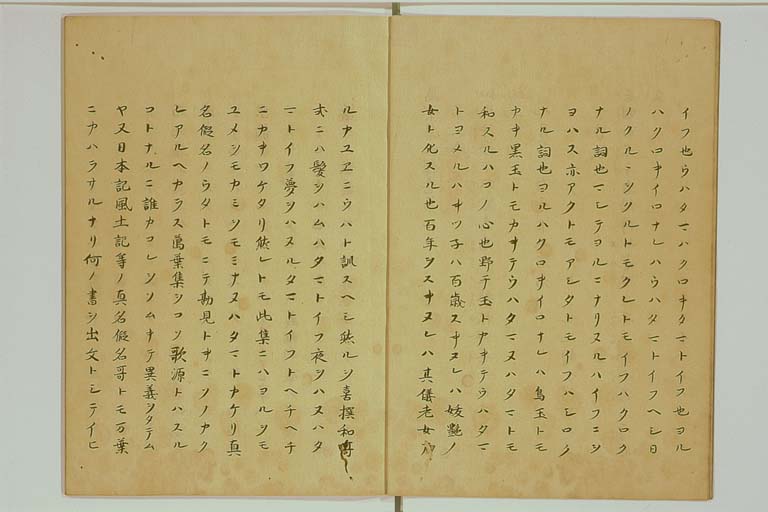 イフ也ウハタマハクロキタマトイフ也ヨル
ハクロキイロナレハウハタマトイフヘシ日
ノクルヽヲクルトモクレトモイフハクロク
ナル詞也マシテヨルニナリヌルハイフニヲ
ヨハス亦アクトモアシタトモイフハシロク
ナル詞也ヨルハクロキイロナレハ烏玉トモ
カキ黒玉トモカキテウハタマヌハタマトモ
和スルハコノ心也野干玉トカキテウハタマ
トヨメルハキツ子ハ百歳スキヌレハ妓艶ノ
女ト化スル也百年ヲスキヌレハ其儀老女ノ
ルカユヱニウハト訓スヘシ然ルヲ喜撰和哥
式ニハ髪ヲハムハタマトイフ夜ヲハヌハタ
マトイフ夢ヲハヌルタマトイフトヘチヘチ
ニカキワケタリ然レトモ此集ニハヨルヲモ
ユメヲモカミヲモミナヌハタマトカケリ真
名假名ノウタトモニテ勘見トキニソノカク
レアルヘカラス萬葉集ヲコソ歌源トハスル
コトナルニ誰カコレヲソムキテ異義ヲタテム
ヤ又日本記風土記等ノ真名假名哥トモ万葉
ニカハラサルナリ何ノ書ヲ出文トシテイヒ